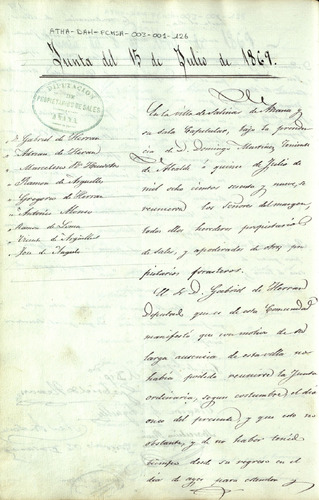 ATHA-DAH-FCMSA-002-001-126
Junta del 15 de Julio de 1869.
DIPUTACION
PROPIETARIOS DE SALES
AÑANA
D. Gabriel de Herran
Adrian de Herran
Marcelino
Ramon de Arguelles
Gregorio de Herran
Antonio Alonso
Ramon de
Vicente de
José de Angulo
En la villa de Salinas de Añana y
su Sala Capitular, bajo la presiden
cia de D. Domingo Martinez Teniente
de Alcalde á quince de Julio de
mil ocho cientos sesenta y nueve, se
reunieron los Señores del margen,
todos ellos herederos propietarios
de sales, y apoderados de otros pro
pietarios forasteros.
El Sr. D. Gabriel de Herran
Diputado que es de esta Comunidad
manifestó que con motivo de su
larga ausencia de esta villa no se
habia podido reunirse la Junta
ordinaria, segun costumbre el dia
once del presente y que esto no
obstante, y de no haber tenido
tiempo desde su regreso en el
dia de ayer para estender y